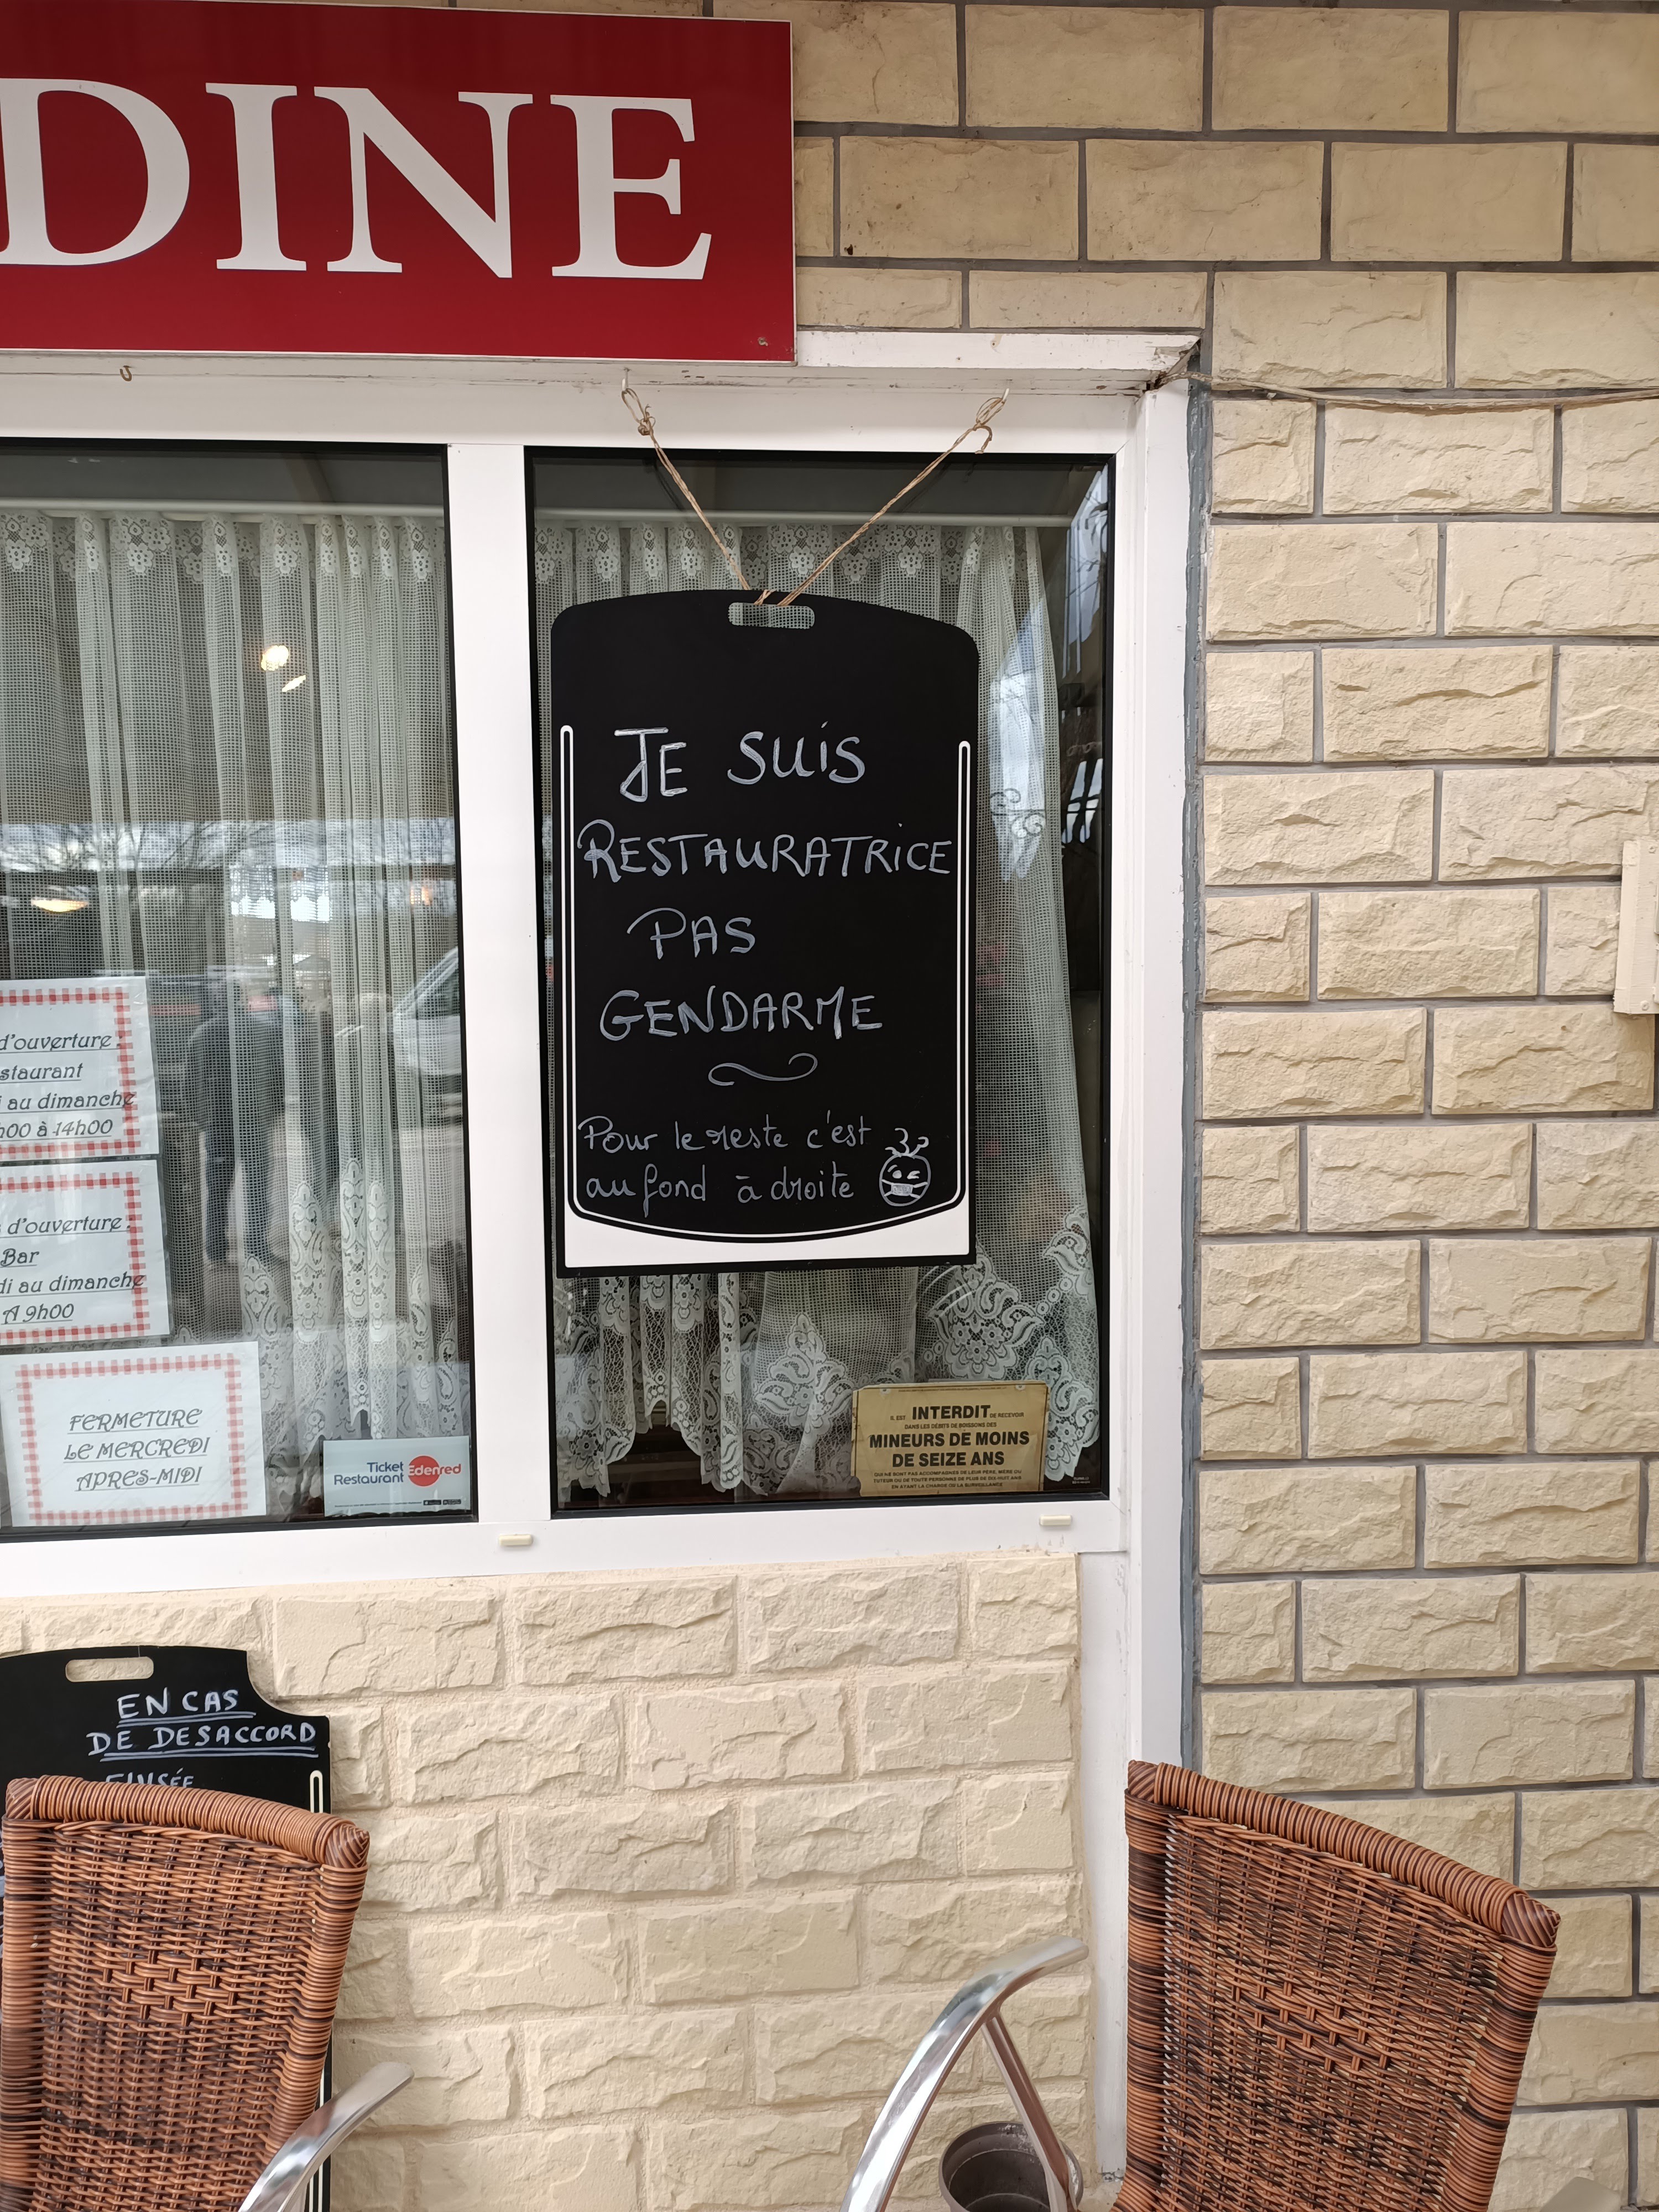 DINE
JE SUIS
RESTAURATRICE
PAS
GENDARME
Pour le reste c'est
au fond à droite
d'ouverture :
staurant
i au dimanche
h00 à 14h00
d'ouverture :
Bar
di au dimanche
A 9h00
FERMETURE
LE MERCREDI
APRES-MIDI
Ticket
Restaurant
Edenred
IL EST INTERDIT DE RECEVOIR
DANS LES DÉBITS DE BOISSONS DES
MINEURS DE MOINS
DE SEIZE ANS
QUI NE SONT PAS ACCOMPAGNÉS DE LEUR PÈRE, MÈRE OU
TUTEUR OU DE TOUTE PERSONNE DE PLUS DE DIX-HUIT ANS
EN AYANT LA CHARGE OU LA SURVEILLANCE
EN CAS
DE DESACCORD